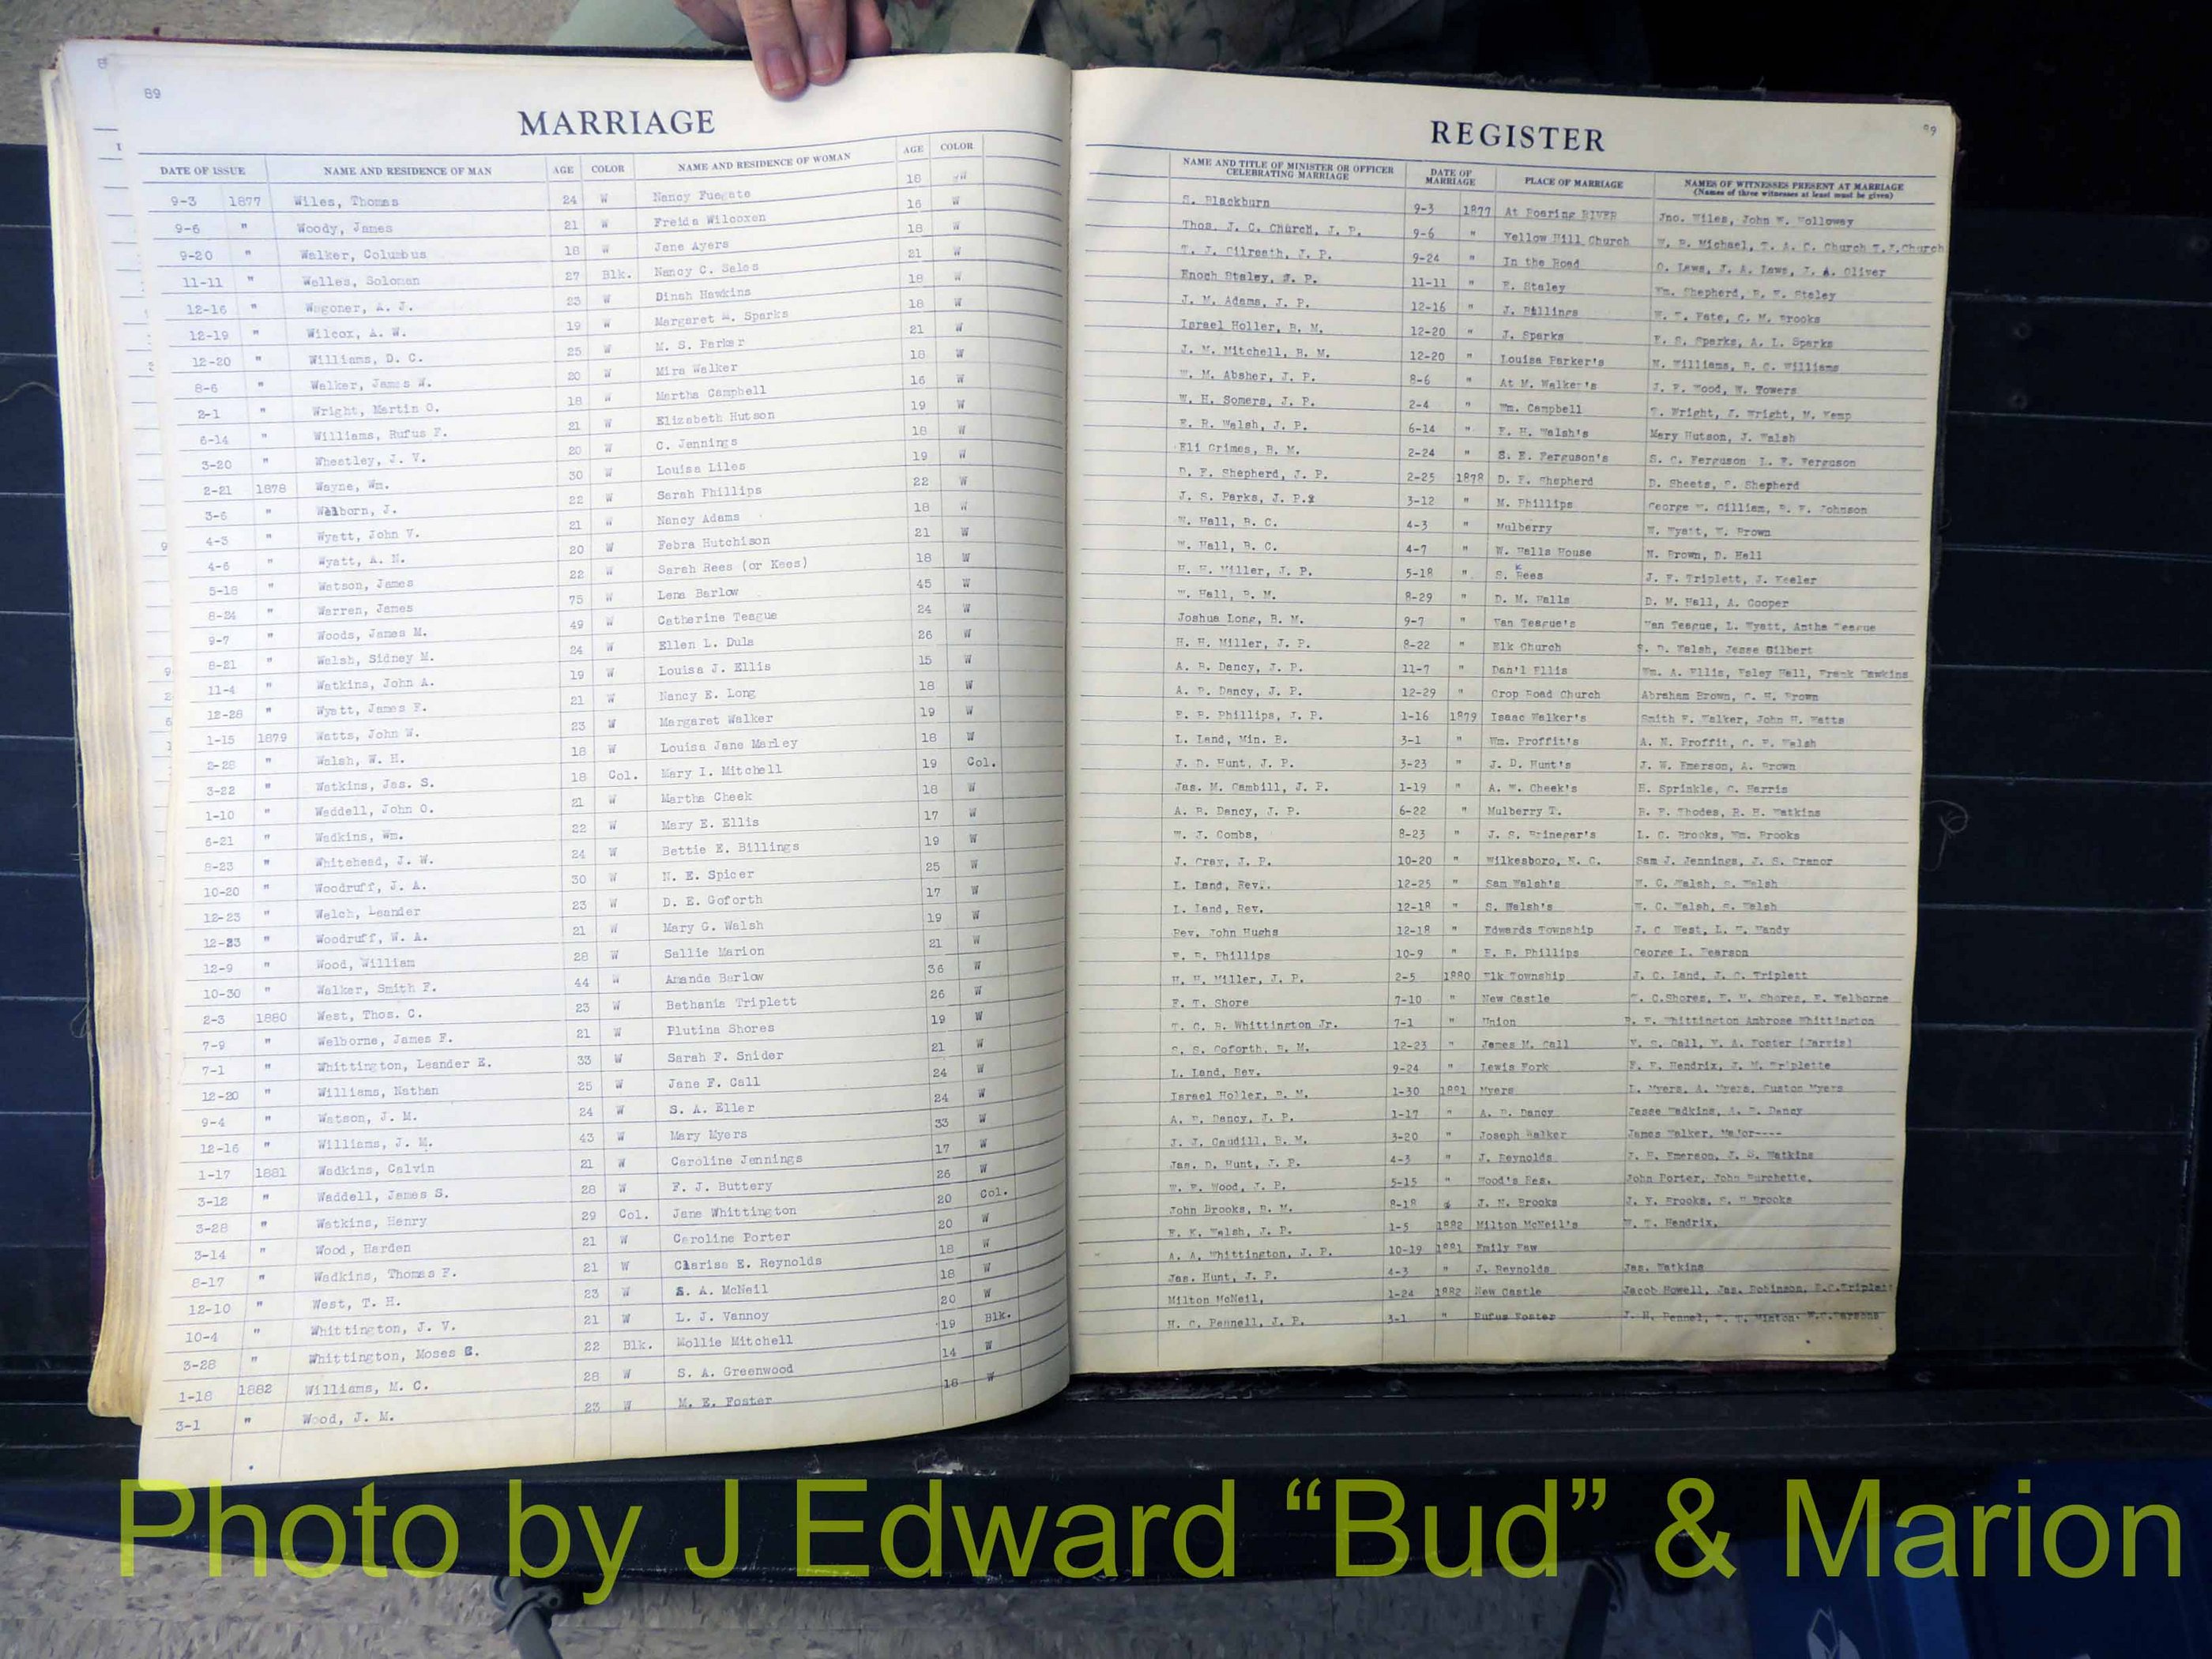 89
MARRIAGE
DATE OF ISSUE NAME AND RESIDENCE OF MAN AGE COLOR NAME AND RESIDENCE OF WOMAN AGE COLOR
9-3 1877 Wiles, Thomas 24 W Nancy Fugate 18 W
9-6 " Woody, James 21 W Freida Wilcoxen 16 W
9-20 " Walker, Columbus 18 W Jane Ayers 18 W
11-11 " Welles, Soloman 27 Blk. Nancy C. Sales 21 W
12-16 " Wagoner, A. J. 23 W Dinah Hawkins 18 W
12-19 " Wilcox, A. W. 19 W Margaret M. Sparks 18 W
12-20 " Williams, D. C. 25 W M. S. Parker 21 W
8-6 " Walker, James W. 20 W Mira Walker 18 W
2-1 " Wright, Martin O. 18 W Martha Campbell 16 W
6-14 " Williams, Rufus F. 21 W Elizabeth Hutson 19 W
3-20 " Wheatley, J. V. 20 W C. Jennings 18 W
2-21 1878 Wayne, Wm. 30 W Louisa Liles 19 W
3-6 " Welborn, J. 22 W Sarah Phillips 22 W
4-3 " Wyatt, John V. 21 W Nancy Adams 18 W
4-6 " Wyatt, A. N. 20 W Febra Hutchison 21 W
5-18 " Watson, James 22 W Sarah Rees (or Kees) 18 W
8-24 " Warren, James 75 W Lena Barlow 45 W
9-7 " Woods, James M. 49 W Catherine Teague 24 W
8-21 " Walsh, Sidney M. 24 W Ellen L. Dula 26 W
11-4 " Watkins, John A. 19 W Louisa J. Ellis 15 W
12-28 " Wyatt, James F. 21 W Nancy E. Long 18 W
1-15 1879 Watts, John W. 23 W Margaret Walker 19 W
2-28 " Walsh, W. H. 18 W Louisa Jane Marley 18 W
3-22 " Watkins, Jas. S. 18 Col. Mary I. Mitchell 19 Col.
1-10 " Waddell, John O. 21 W Martha Cheek 18 W
6-21 " Wadkins, Wm. 22 W Mary E. Ellis 17 W
8-23 " Whitehead, J. W. 24 W Bettie E. Billings 19 W
10-20 " Woodruff, J. A. 30 W N. E. Spicer 25 W
12-23 " Welch, Leander 23 W D. E. Goforth 17 W
12-23 " Woodruff, W. A. 21 W Mary G. Walsh 19 W
12-9 " Wood, William 28 W Sallie Marion 21 W
10-30 " Walker, Smith F. 44 W Amanda Barlow 36 W
2-3 1880 West, Thos. C. 23 W Bethania Triplett 26 W
7-9 " Welborne, James F. 21 W Plutina Shores 19 W
7-1 " Whittington, Leander E. 33 W Sarah F. Snider 21 W
12-20 " Williams, Nathan 25 W Jane F. Call 24 W
9-4 " Watson, J. M. 24 W S. A. Eller 24 W
12-16 " Williams, J. M. 43 W Mary Myers 33 W
1-17 1881 Wadkins, Calvin 21 W Caroline Jennings 17 W
3-12 " Waddell, James S. 28 W F. J. Buttery 26 W
3-28 " Watkins, Henry 29 Col. Jane Whittington 20 Col.
3-14 " Wood, Harden 21 W Caroline Porter 20 W
8-17 " Wadkins, Thomas F. 21 W Clarisa E. Reynolds 18 W
12-10 " West, T. H. 23 W S. A. McNeil 18 W
10-4 " Whittington, J. V. 21 W L. J. Vannoy 20 W
3-28 " Whittington, Moses C. 22 Blk. Mollie Mitchell 19 Blk.
1-18 1882 Williams, M. C. 28 W S. A. Greenwood 14 W
3-1 " Wood, J. M. 23 W M. E. Foster 18 W
REGISTER
NAME AND TITLE OF MINISTER OR OFFICER CELEBRATING MARRIAGE DATE OF MARRIAGE PLACE OF MARRIAGE NAMES OF WITNESSES PRESENT AT MARRIAGE
(Names of three witnesses at least must be given)
S. Blackburn 9-3 1877 At Roaring RIVER Jno. Wiles, John W. Holloway
Thos. J. C. Church, J. P. 9-6 " Yellow Hill Church Michael, T. A. C. Church
T. J. Gilreath, J. P. 9-24 " In the Road O. Laws, J. A. Laws, J. A. Oliver
Enoch Staley, J. P. 11-11 " E. Staley Wm. Shepherd, Staley
J. M. Adams, J. P. 12-16 " J. Billings Pate, C. M. Brooks
Israel Holler, B. M. 12-20 " J. Sparks Sparks, A. L. Sparks
J. M. Mitchell, B. M. 12-20 " Louisa Parker's Williams, Williams
W. M. Absher, J. P. 8-6 " At M. Walker's J. F. Wood, W. Towers
W. H. Somers, J. P. 2-4 " Wm. Campbell Wright, J. Wright, M. Kemp
E. R. Walsh, J. P. 6-14 " E. H. Walsh's Mary Hutson, J. Walsh
Eli Grimes, B. M. 2-24 " S. E. Ferguson's S. C. Ferguson L. F. Ferguson
D. F. Shepherd, J. P. 2-25 1878 D. F. Shepherd D. Sheets, S. Shepherd
J. S. Parks, J. P. 3-12 " M. Phillips George W. Gilliam, Johnson
W. Hall, B. C. 4-3 " Mulberry W. Wyatt, W. Brown
W. Hall, B. C. 4-7 " W. Halls House N. Brown, D. Hall
H. H. Miller, J. P. 5-18 " S. Rees J. F. Triplett, J. Keeler
W. Hall, B. M. 8-29 " D. M. Halls D. M. Hall, A. Cooper
Joshua Long, B. M. 9-7 " Van Teague's Van Teague, L. Wyatt, Teague
H. H. Miller, J. P. 8-22 " Elk Church S. D. Walsh, Jesse Gilbert
A. B. Dancy, J. P. 11-7 " Dan'l Ellis Wm. A. Ellis, Esley Hall, Frank Hawkins
A. B. Dancy, J. P. 12-29 " Crop Road Church Abraham Brown, Brown
E. R. Phillips, J. P. 1-16 1879 Isaac Walker's Smith F. Walker, John H. Watts
L. Land, Min. B. 3-1 " Wm. Proffit's A. N. Proffit, Walsh
J. D. Hunt, J. P. 3-23 " J. D. Hunt's J. W. Emerson, A. Brown
Jas. M. Gambill, J. P. 1-19 " A. W. Cheek's H. Sprinkle, C. Harris
A. B. Dancy, J. P. 6-22 " Mulberry T. Rhodes, R. H. Watkins
W. J. Combs, 8-23 " J. S. Brinegar's L. C. Brooks, Wm. Brooks
J. Gray, J. P. 10-20 " Wilkesboro, N. C. Sam J. Jennings, J. S. Cranor
L. Land, Rev. 12-25 " Sam Walsh's W. C. Walsh, Walsh
L. Land, Rev. 12-18 " S. Walsh's W. C. Walsh, Walsh
Rev. John Hughs 12-18 " Edwards Township J. C West, L. H. Handy
E. R. Phillips 10-9 " E. R. Phillips George L. Pearson
H. H. Miller, J. P. 2-5 1880 Elk Township J. C. Land, J. C. Triplett
E. T. Shore 7-10 " New Castle Shores, Shores, E. Welborne
T. C. B. Whittington Jr. 7-1 " Union Whittington Ambrose Whittington
C. S. Goforth, B. M. 12-23 " James M. Call Call, Foster (Jarvis)
L. Land, Rev. 9-24 " Lewis Fork Hendrix, J. M. Triplette
Israel Holler, B. M. 1-30 1881 Myers L. Myers, A. Myers, Custon Myers
A. B. Dancy, J. P. 1-17 " A. B. Dancy Jesse Wadkins, A. B. Dancy
J. J. Caudill, B. M. 3-20 " Joseph Walker James Walker, Major----
Jas. D. Hunt, J. P. 4-3 " J. Reynolds J. B. Emerson, J. S. Watkins
W. F. Wood, J. P. 5-15 " Wood's Res. John Porter, John Burchette,
John Brooks, B. M. 8-18 J. H. Brooks J. Y. Brooks, Brooks
E. K. Walsh, J. P. 1-5 1882 Milton McNeil's Hendrix,
A. A. Whittington, J. P. 10-19 1881 Emily Faw
Jas. Hunt, J. P. 4-3 " J. Reynolds Jas. Watkins
Milton McNeil, 1-24 1882 New Castle Jacob Howell, Jas. Robinson, Triplett
H. C. Pennell, J. P. 3-1 " Rufus Foster Pennel, Minton Parsons
Photo by J Edward “Bud” & Marion